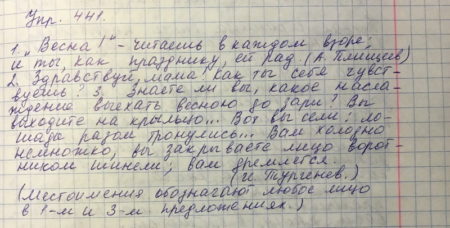 Упр. 441.
1. „Весна!" - читаешь в каждом взоре;
и ты, как празднику, ей рад. (А. Плещеев)
2. Здравствуй, мама! Как ты себя чувст-
вуешь? 3. Знаете ли вы, какое насла-
ждение выехать весною до зари? Вы
выходите на крыльцо... Вот вы сели; ло-
шади разом тронулись... Вам холодно
немножко, вы закрываете лицо ворот-
ником шинели; вам дремлется
(И. Тургенев.)
(Местоимения обозначают любое лицо
в 1-м и 3-м предложениях.)